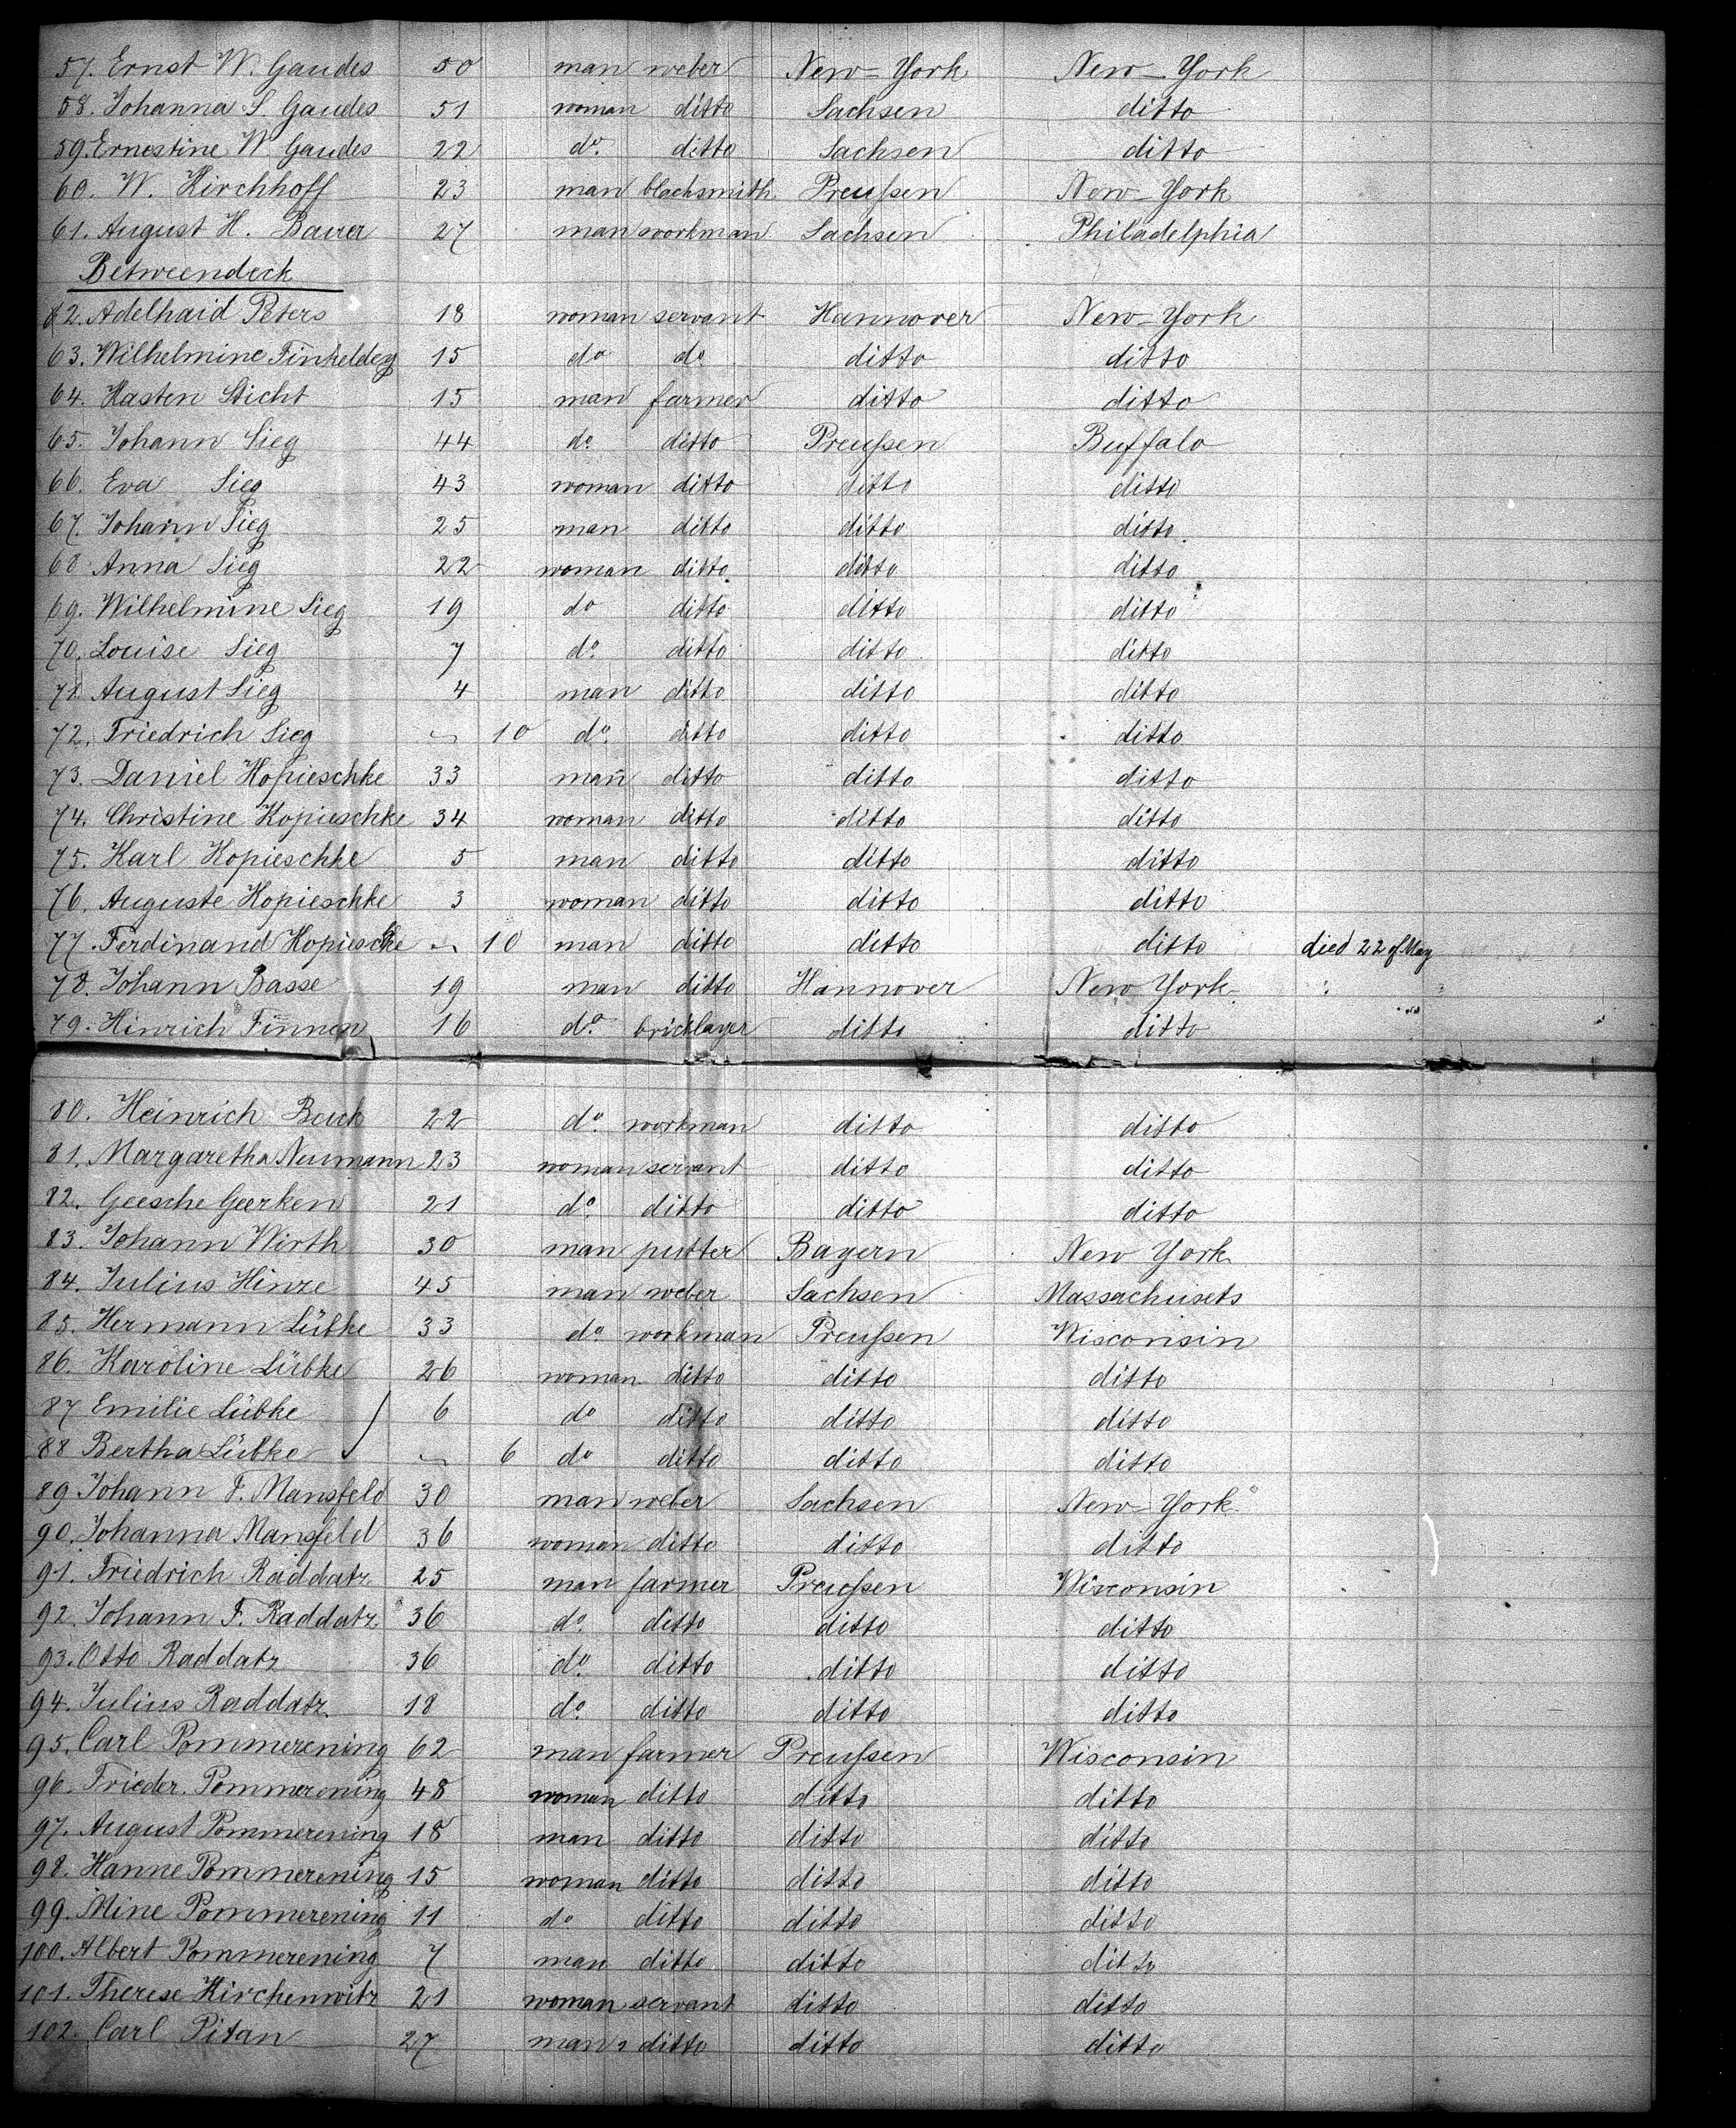 57. Ernst W. Gaudes 50 man weber New-York New-York
58. Johanna S. Gaudes 51 woman ditto Sachsen ditto
59. Ernestine W. Gaudes 22 do. ditto Sachsen ditto
60. W. Kirchhoff 23 man blacksmith. Preußen New-York
61. August H. Bauer 27 man workman Sachsen Philadelphia
Betweendeck
62. Adelhaid Peters 18 woman servant Hannover New-York
63. Wilhelmine 15 do do. ditto ditto
64. Kasten Sticht 15 man farmer ditto ditto
65. Johann Sieg 44 do. ditto Preußen Buffalo
66. Eva Sieg 43 woman ditto ditto ditto
67. Johann Sieg 25 man ditto ditto ditto.
68 Anna Sieg 22 woman ditto. ditto ditto
69. Wilhelmine Sieg 19 do ditto ditto ditto
70. Louise Sieg 7 do. ditto ditto ditto
71. August Sieg 4 man ditto ditto ditto
72. Friedrich Sieg ~ 10 do. ditto ditto ditto
73. Daniel Kopieschke 33 man ditto ditto ditto
74. Christine Kopieschke 34 woman ditto ditto ditto
75. Karl Kopieschke 5 man ditto ditto ditto
76. Auguste Kopieschke 3 woman ditto ditto ditto
77. Ferdinand Kopieschke ~ 10 man ditto ditto ditto died 22 of May
78. Johann Basse 19 man ditto Hannover New York
79. Hinrich Finnen 16 do. bricklayer ditto ditto
80. Heinrich Buck 22 do. workman ditto ditto
81. Margaretha Neumann 23 woman servant ditto ditto
82. Geesche Geerken 21 do. ditto ditto ditto
83. Johann Wirth 30 man putter Bayern New York
84. Julius Hinze 45 man weber Sachsen Massachusets
85. Hermann Lübke 33 do workman Preußen Wisconsin
86. Karoline Lübke 26 woman ditto ditto ditto
87 Emilie Lübke 6 do ditto ditto ditto
88 Bertha Lübke ~ 6 do ditto ditto ditto
89 Johann F. Mansfeld 30 man weber Sachsen New-York
90. Johanna Mansfeld 36 woman ditto ditto ditto
91. Friedrich Raddatz 25 man farmer Preußen Wisconsin
92. Johann F. Raddatz. 36 do. ditto ditto ditto
93. Otto Raddatz 36 do. ditto ditto ditto
94. Julius Raddatz. 18 do. ditto ditto ditto
95. Carl Pommerening 62 man farmer Preußen Wisconsin
96. Frieder. Pommerening 48 woman ditto ditto ditto
97. August Pommerening 18 man ditto ditto ditto
98. Hanne Pommerening 15 woman ditto ditto ditto
99. Mine Pommerening 11 do ditto ditto ditto
100. Albert Pommerening 7 man ditto ditto ditto
101. Therese Kirchenwitz 21 woman servant ditto ditto
102. Carl Pitan 27 man ditto ditto ditto